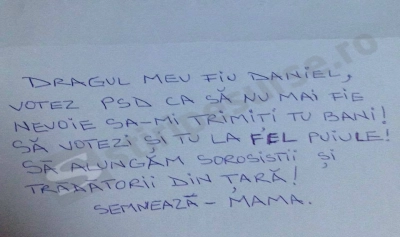 DRAGUL MEU FIU DANIEL,
VOTEZ PSD CA SĂ NU MAI FIE
NEVOIE SA-MI TRIMIȚI TU BANI!
SĂ VOTEZI ȘI TU LA FEL PUIULE!
SĂ ALUNGĂM SOROSISTII ȘI
TRADATORII DIN ȚARĂ!
SEMNEAZĂ - MAMA.